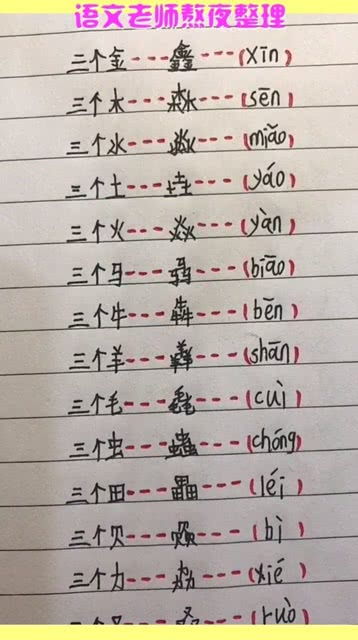 语文老师熬夜整理
三个金---鑫---(xīn)
三个木---森---(sēn)
三个水---淼---(miǎo)
三个土---垚---(yáo)
三个火---焱---(yàn)
三个马---骉---(biāo)
三个牛---犇---(bēn)
三个羊---羴---(shān)
三个毛---毳---(cuì)
三个虫---蟲---(chóng)
三个田---畾---(léi)
三个贝---赑---(bì)
三个力---劦---(xié)
三个又---叒---(ruò)